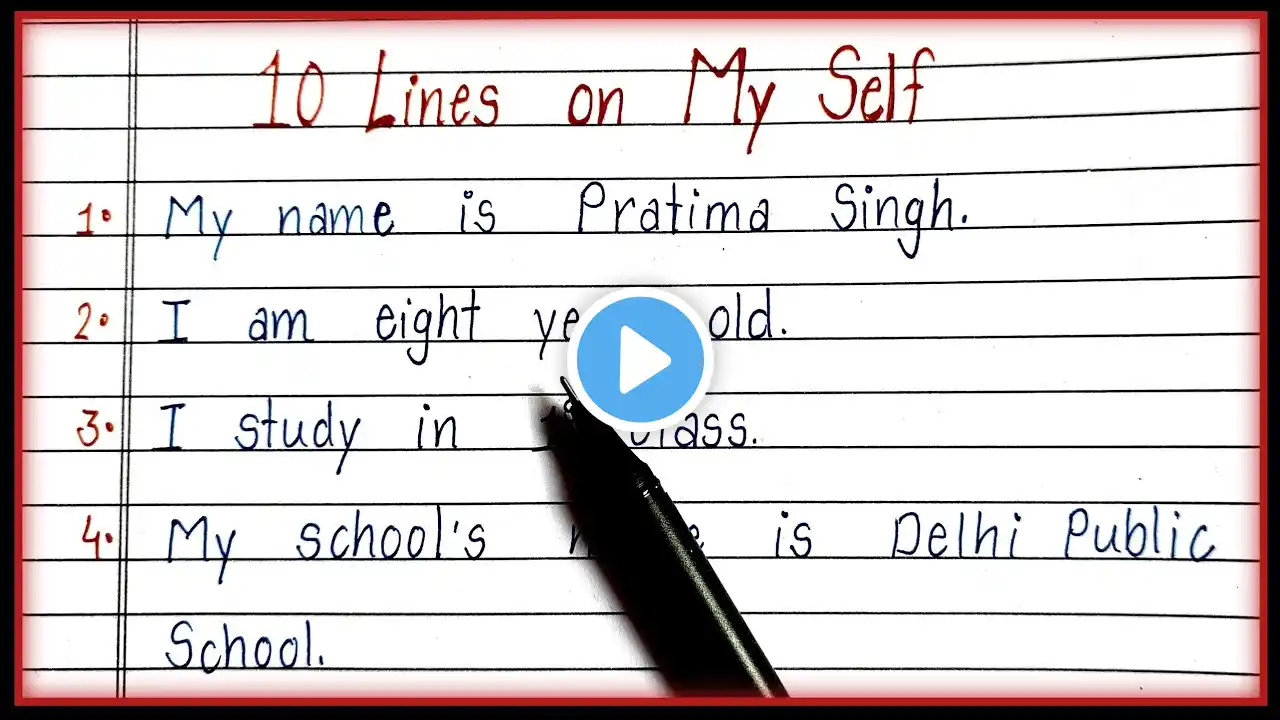 10 Lines on My Self
1. My name is Pratima Singh.
2. I am eight old.
3. I study in class.
4. My school's is Delhi Public
School.